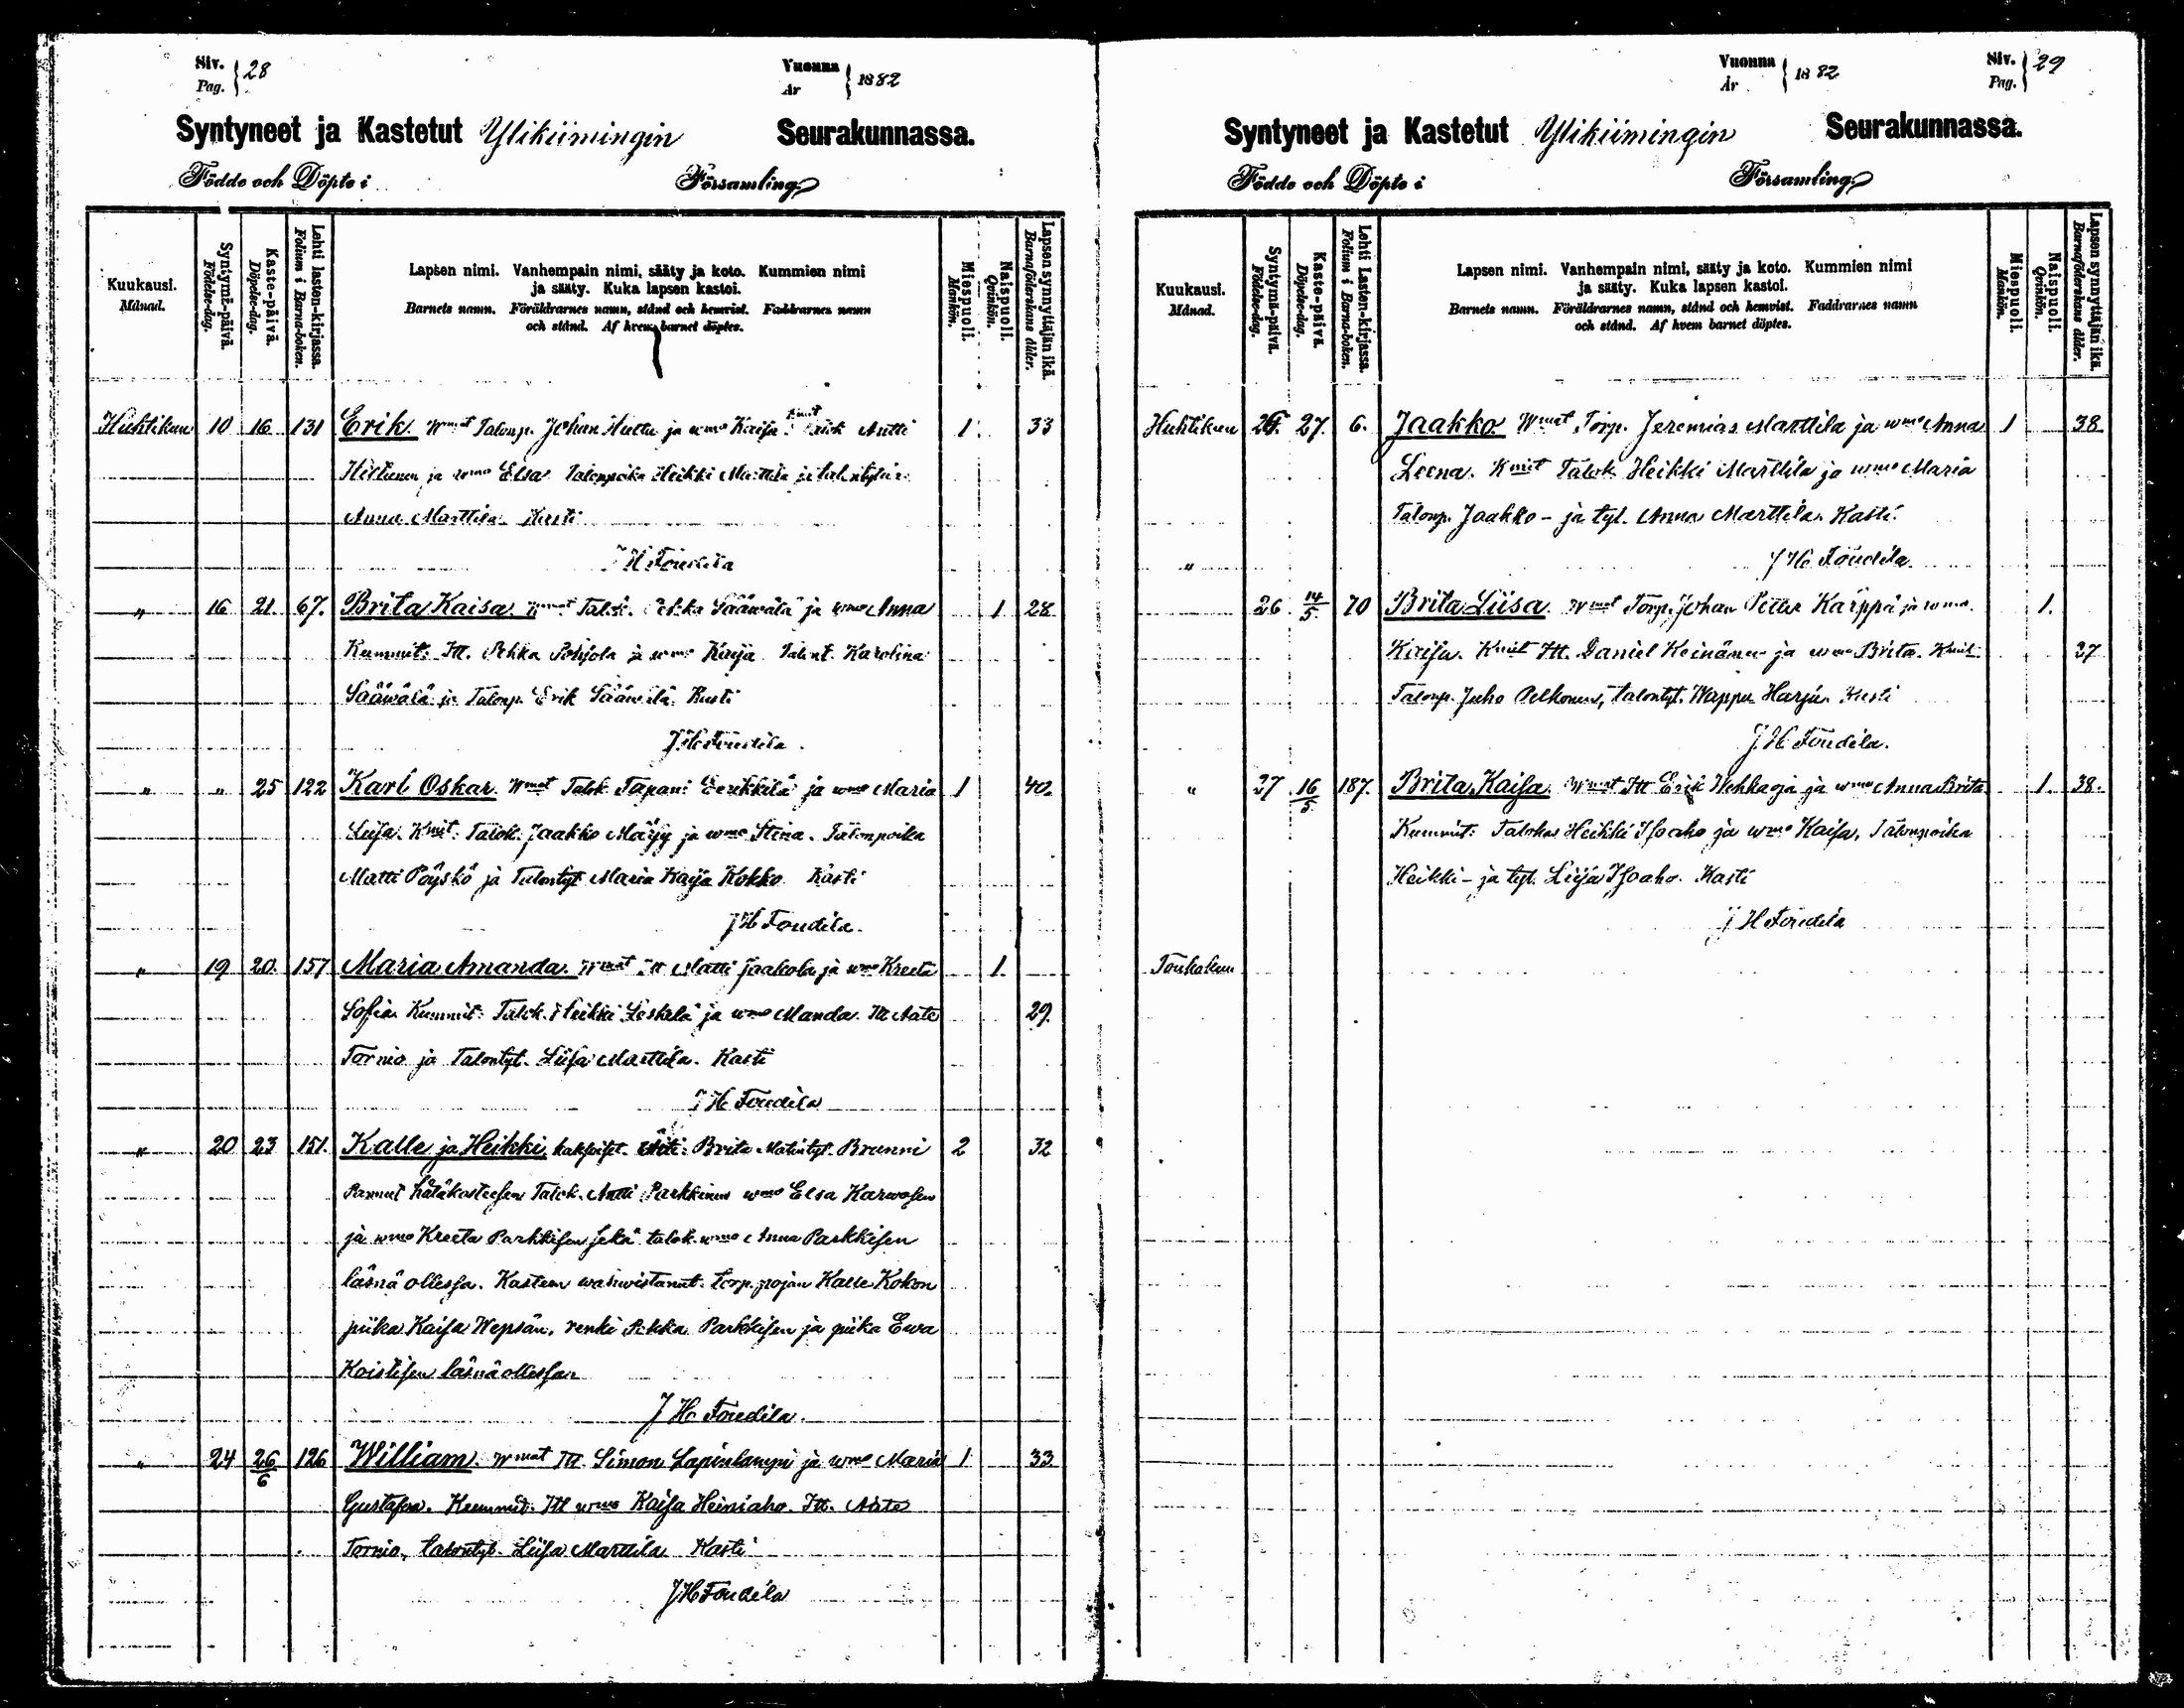 Siv. Pag. } 28 Vuonna År } 1882
Syntyneet ja Kastetut Ylikiimingin Seurakunnassa.
Födde och Döpte i Församling
Kuukausi. Månad.
Syntymä-päivä. Födelse-dag.
Kaste-päivä. Döpelse-dag.
Lehti lasten-kirjassa. Folium i Barna-boken.
Lapsen nimi. Vanhempain nimi, sääty ja koto. Kummien nimi
ja sääty. Kuka lapsen kastoi.
Barnets namn. Föräldrarnes namn, stånd och hemvist. Faddrarnes namn
och stånd. Af hvem barnet döptes.
Miespuoli. Mankön.
Naispuoli. Qvinkön.
Lapsen synnyttäjän ikä. Barnaföderskans ålder.
Huhtikuu 10 16 131 Erik Wmat Talonp. Johan Huttu ja wmo Kaisa. Kmit Antti 1 33
Hiltunen ja wmo Elsa Talonpoika Heikki Marttila ja
Anna Marttila Kasti
J H Toudila
" 16 21. 67. Brita Kaisa Wmat Talok. Pekka Sääwälä ja wmo Anna 1 28
Kummit: Itt. Pekka Pohjola ja wmo Kaija Talont. Karolina
Sääwälä ja Talonp. Erik Sääwälä Kasti
J H Toudila.
" " 25 122 Karl Oskar Wmat Talok Tapani ja wmo Maria 1 40.
Liisa. Kmit. Talok. Jaakko Märjy ja wmo Stina. Talonpoika
Matti Pöyskö ja Talontyt Maria Kaija Kokko Kasti
J H Toudila.
" 19 20. 157 Maria Amanda. Wmat Itt Matti Jaakola ja wmo Kreeta 1.
Sofia Kummit: Talok. Heikki Leskelä ja wmo Manda. Itt Aate 29.
Tornio ja Talontyt. Liisa Marttila. Kasti
J H Toudila
" 20 23 151. Kalle ja Heikki, kaksoiset. Äiti: Brita Matintyt. Brunni 2 32
Pannut hätäkasteesen Talok. Antti Parkkinen wmo Elsa Karwosen
ja wmo Kreeta Parkkisen sekä talok. wmo Anna Parkkisen
läsnä ollessa. Kasteen wahwistanut torp. pojan Kalle Kokon
piika Kaisa Wepsän, renki Pekka Parkkisen ja piika Ewa
Koistisen läsnäollessa
J H Toudila.
" 24 26/6 126 William. Wmat Itt Simon Lapinlampi ja wmo Maria 1 33
Gustafva. Kummit. Itt wmo Kaisa Heiniaho. Itt. Aate
Tornio, talontyt. Liisa Marttila Kasti
J H Toudila
Vuonna År } 1882 Siv. Pag. } 29
Syntyneet ja Kastetut Ylikiimingin Seurakunnassa.
Födde och Döpte i Församling
Kuukausi. Månad.
Syntymä-päivä. Födelse-dag.
Kaste-päivä. Döpelse-dag.
Lehti Lasten-kirjassa. Folium i Barna-boken.
Lapsen nimi. Vanhempain nimi, sääty ja koto. Kummien nimi
ja sääty. Kuka lapsen kastoi.
Barnets namn. Föräldrarnes namn, stånd och hemvist. Faddrarnes namn
och stånd. Af hvem barnet döptes.
Miespuoli. Mankön.
Naispuoli. Qvinkön.
Lapsen synnyttäjän ikä. Barnaföderskans ålder.
Huhtikuu 27. 6. Jaakko Wmat Torp. Jeremias Marttila ja wmo Anna 1 38
Leena. Kmit Talok Heikki Marttila ja wmo Maria
Talonp. Jaakko - ja tyt. Anna Marttila. Kasti.
" J H Toudila.
26 14/5. 70 Brita Liisa. Wmat Torp. Johan Petter Karppa ja wmo 1.
Kaisa. Kmit Itt. Daniel Heinänen ja wmo Brita. Kmit 27
Talonp. Juho Pelkonen, talontyt. Wappu Harju Kasti
J H Toudila.
" 27 16/5. 187. Brita Kaisa. Wmat Itt Erik Wehkaoja ja wmo Anna Brita 1. 38.
Kummit: Talokas Heikki Isoaho ja wmo Kaisa, Talonpoika
Heikki - ja tyt. Liisa Isoaho. Kasti
J H Toudila
Toukokuu